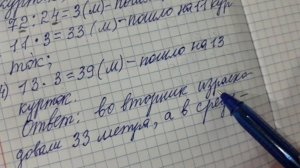 72:24=3(м)-пошло на 1 кур
11·3=33(м)-пошло на 11 кур
ток;
4) 13·3=39(м)-пошло на 13
курток.
Ответ: во вторник израсхо-
довали 33 метра, а в сред-